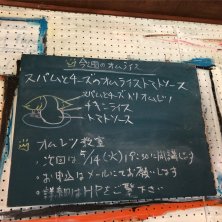 今週のオムライス
スパムとチーズのオムライストマトソース
スパムとチーズ入りオムレツ
チキンライス
トマトソース
オムレツ教室
・次回は 2/14(火)19:30に開講します
・お申込はメールにてお願いします
・詳細はHPをご覧下さい